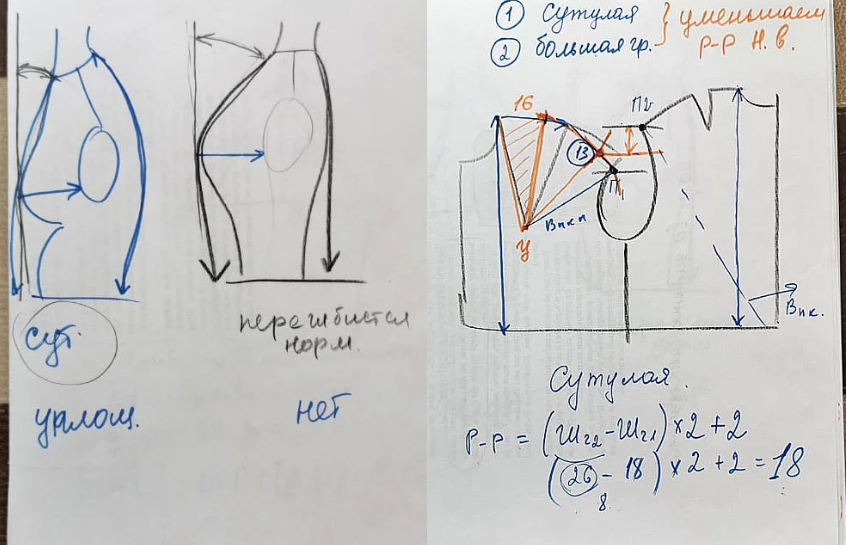 сут.
уплощ.
перегибистая
норм.
нет
1 Сутулая
2 большая гр.
уменьшаем
р-р Н.в.
16
П2
13
П1
У
Впкп
Впк.
Сутулая.
Р-р = (Шг2-Шг1)×2+2
(26 - 18)×2+2=18
8